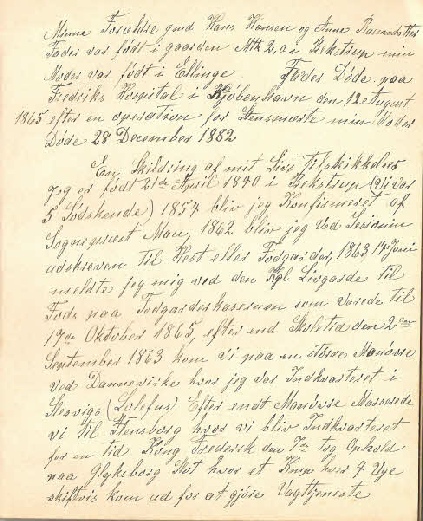 Minne Forældre gmd Hans Hansen og Anne Rasmusdatter
Fader var født i gaarden Mtk 2 a i Birkstrup min
Moder var født i Ellinge Fader Døde paa
Fredriks Hospital i Kjöbenhavn den 12 August
1865 efter en operation for Stensmerte min Moder
Døde 28 December 1882
En Skildring af mit Livs Tilskikkelser
jeg er født 21de April 1840 i Birkstrup (Vi var
5 Sødskende) 1854 bliv jeg Konfirmeret af
Sogneprest Mau, 1862 bliv jeg ved Sessionen
udskreven til Hest eller Fodgarder, 1863 17 Juni
meldte jeg mig ved den Kgl. Livgarde til
Fods paa Fodgardeskasernen som varede til
17de Oktober 1865, efter end Skoletid den 2den
September 1863 kom vi paa en større Manøvre
ved Dannevirke hvor jeg var Indkvarteret i
(Lolefus) Efter endt Manøvre Marserede
vi til Flensborg hvor vi bliv Indkvarteret
for en tid Kong Frederik den 7de tog Ophold
paa Glyksborg Slot hvor et Komp. hver 7 Dye
skiftvis kom ud for at gjöre Vagttjeneste